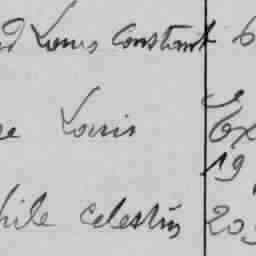 Louis Constant 6
Louis Ex
19
hile Celestin 20